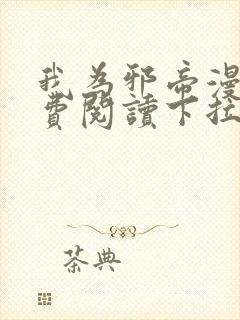 我为邪帝漫
费阅读下拉
茶典